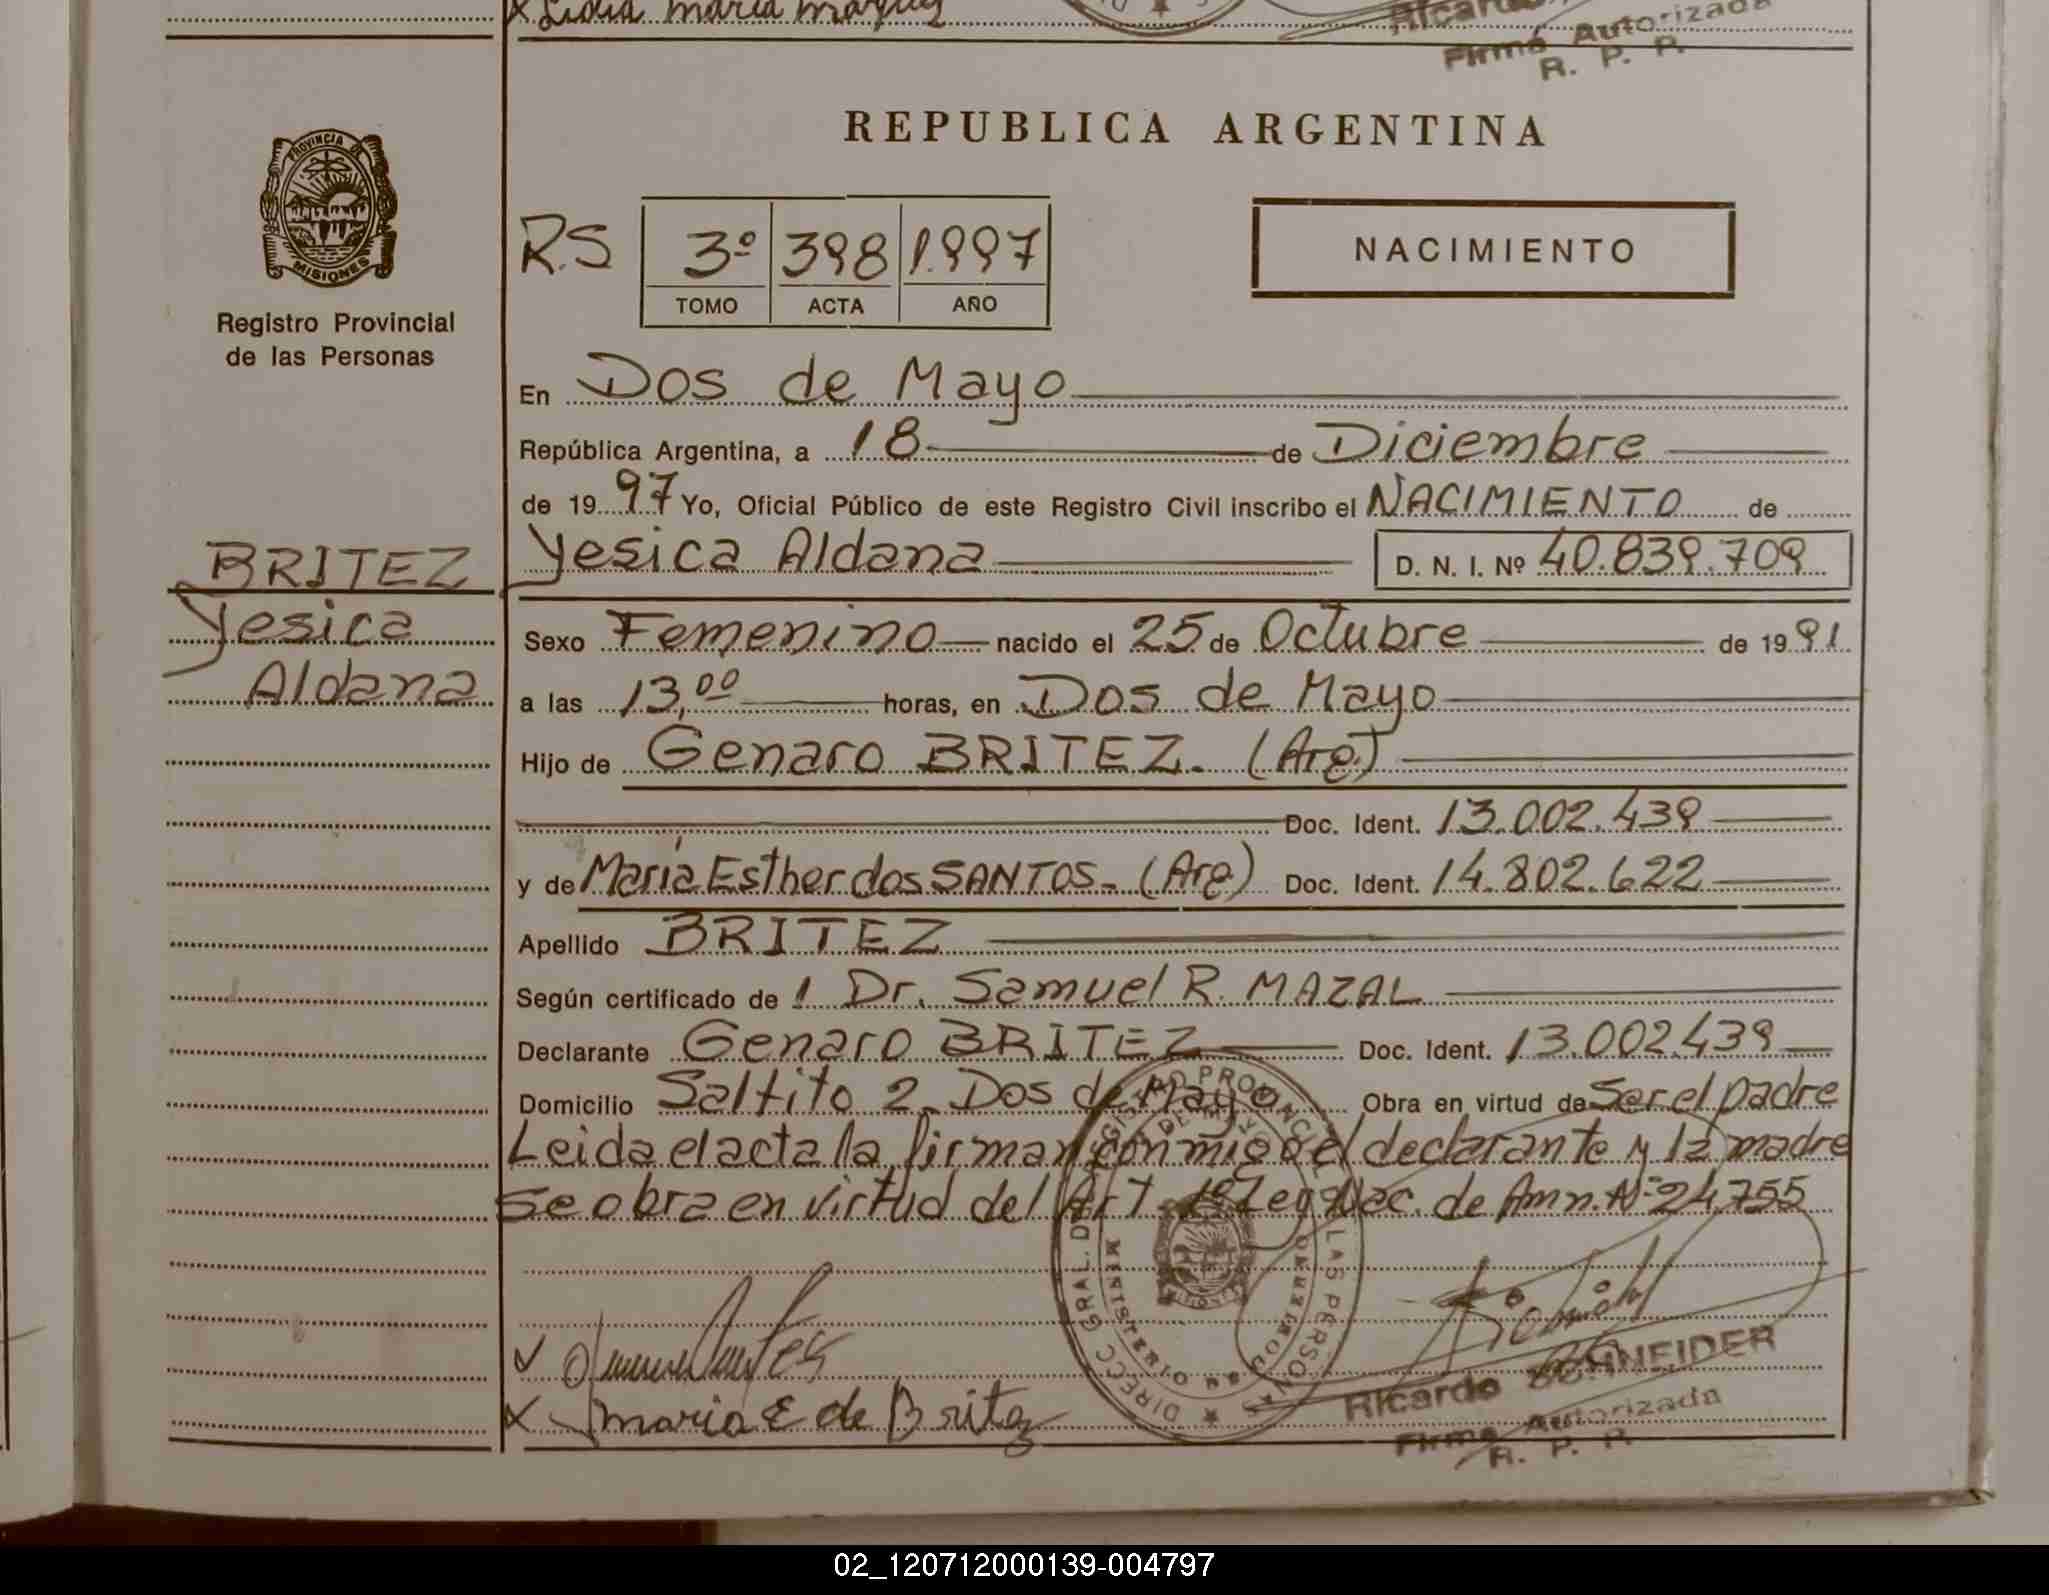 x Lidia Maria Marquez
Ricardo
Firma Autorizada
R. P. P.
PROVINCIA DE
MISIONES
Registro Provincial
de las Personas
REPUBLICA ARGENTINA
R.S 3º 398 1.997
TOMO ACTA AÑO
NACIMIENTO
En Dos de Mayo
República Argentina, a 18 de Diciembre
de 1997 Yo, Oficial Público de este Registro Civil inscribo el NACIMIENTO de
BRITEZ
Yesica
Aldana
Yesica Aldana D. N. I. Nº 40.839.709
Sexo Femenino nacido el 25 de Octubre de 1991
a las 13,00 horas, en Dos de Mayo
Hijo de Genaro BRITEZ. (Arg)
Doc. Ident. 13.002.439
y de María Esther dos SANTOS.- (Arg) Doc. Ident. 14.802.622
Apellido BRITEZ
Según certificado de 1 Dr. Samuel R. MAZAL
Declarante Genaro BRITEZ Doc. Ident. 13.002.439
Domicilio Saltito 2. Dos de Mayo Obra en virtud de Ser el padre
Leida el acta la firman conmigo el declarante y la madre
Se obra en virtud del Art 1º Ley Nac. de Amn. Nº 24.755
x Maria E de Britez
DIRECC GRAL. DEL REGISTRO PROVINCIAL DE LAS PERSONAS
MINISTERIO DE GOBIERNO
MISIONES
Ricardo SCHNEIDER
Firma Autorizada
R. P. P.
02_120712000139-004797